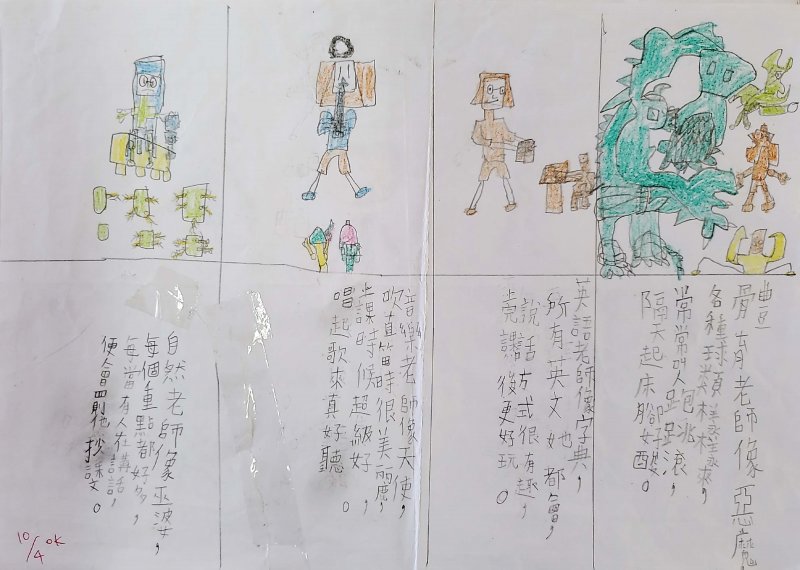 體育老師像惡魔，
各種球類樣樣來，
常常叫人跑跳滾，
隔天起床腳好酸。
英語老師像字典，
所有英文她都會，
說話方式很有趣，
上完課後更好玩。
音樂老師像天使，
吹直笛時很美麗，
上課時候超級好，
唱起歌來真好聽。
自然老師像巫婆，
每個重點都好多，
每當有人在講話，
便會罰他抄課文。
10/4 OK